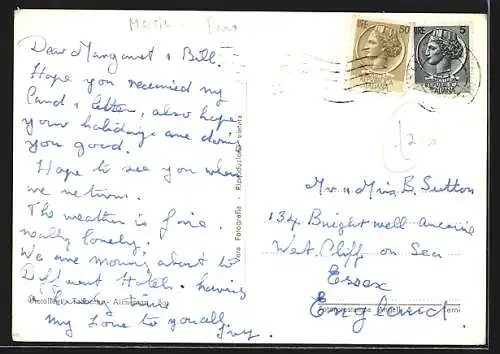 Dear Margaret & Bill.
Hope you received my
Card & letter, also hope
your holidays are doing
you good.
Hope to see you when
we return.
The weather is fine.
really lovely.
We are moving about to
Different Hotels. having
a time
my Love to you all,
Ivy.
Vera Fotografia - Riproduzione vietata
LIRE 50
LIRE 5
£2-00
Mr & Mrs B. Sutton
134 Brightwell Avenue
West Cliff on Sea
Essex
England.